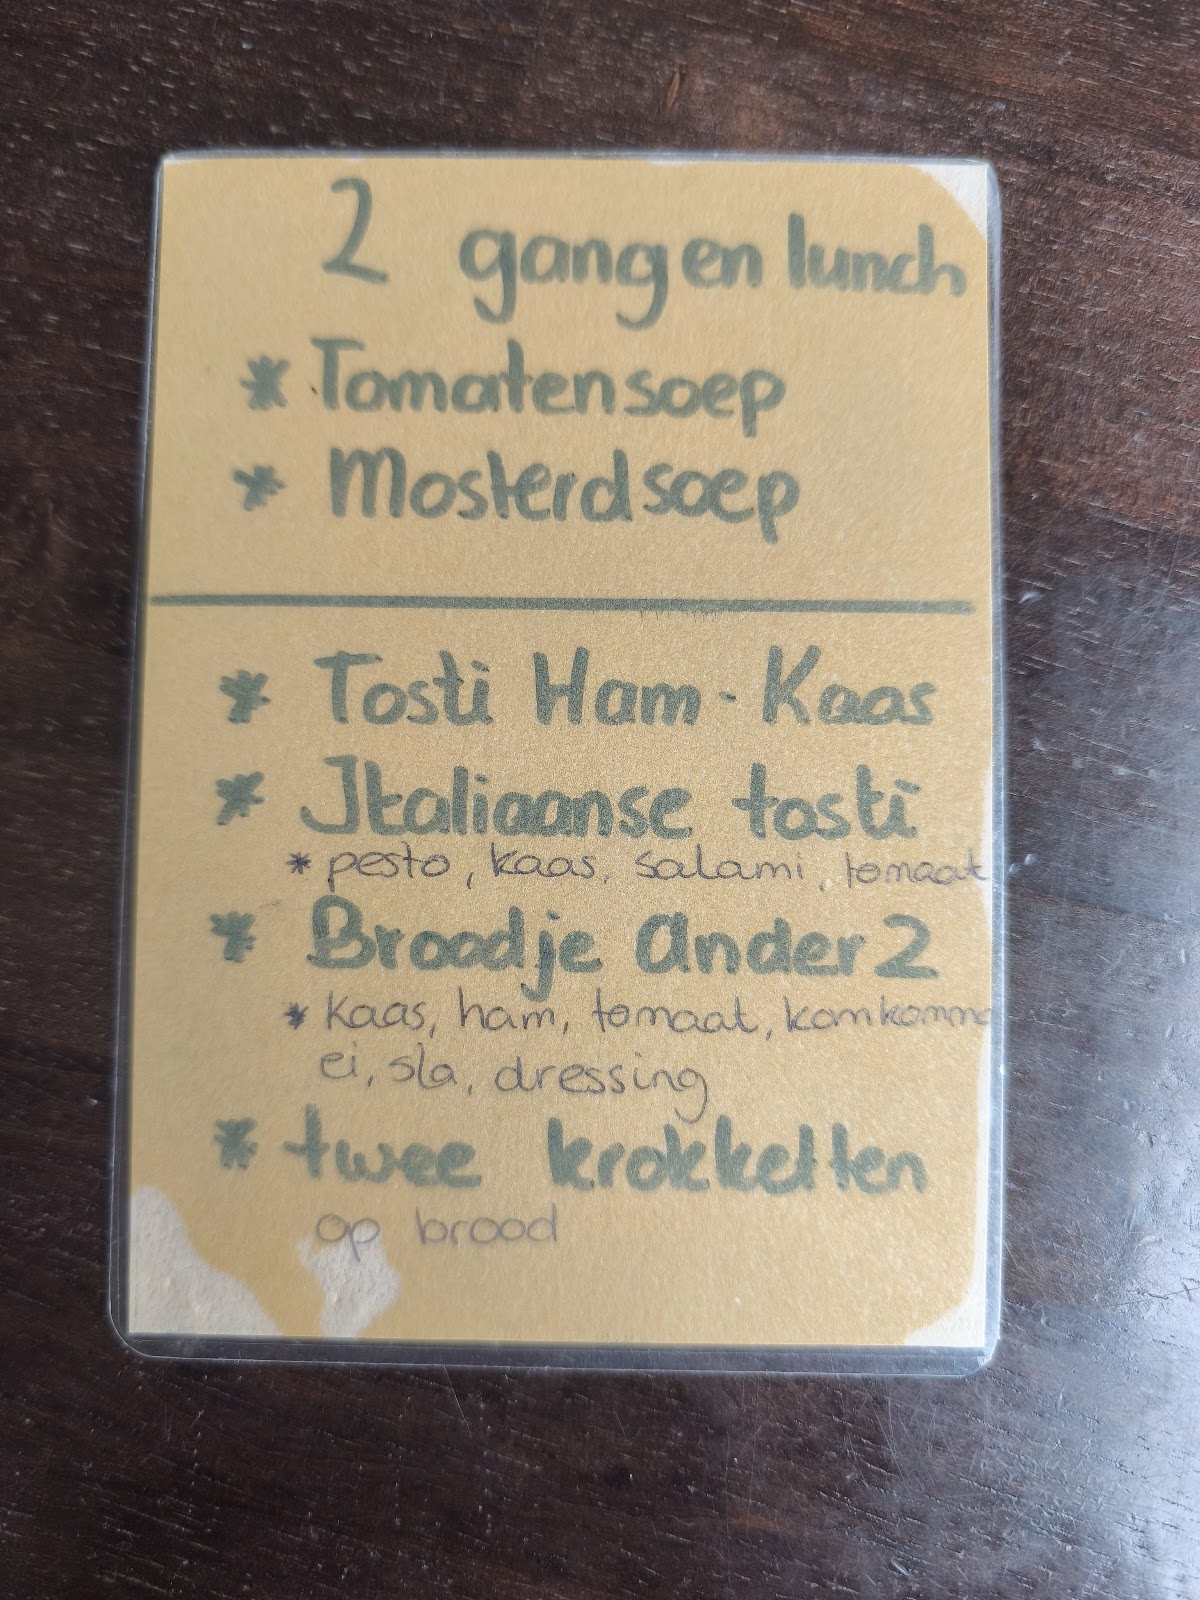 2 gangen lunch
* Tomatensoep
* Mosterdsoep
* Tosti Ham-Kaas
* Italiaanse tosti
* pesto, kaas, salami, tomaat
* Broodje Ander2
* kaas, ham, tomaat, komkomme
ei, sla, dressing
* twee krokketten
op brood